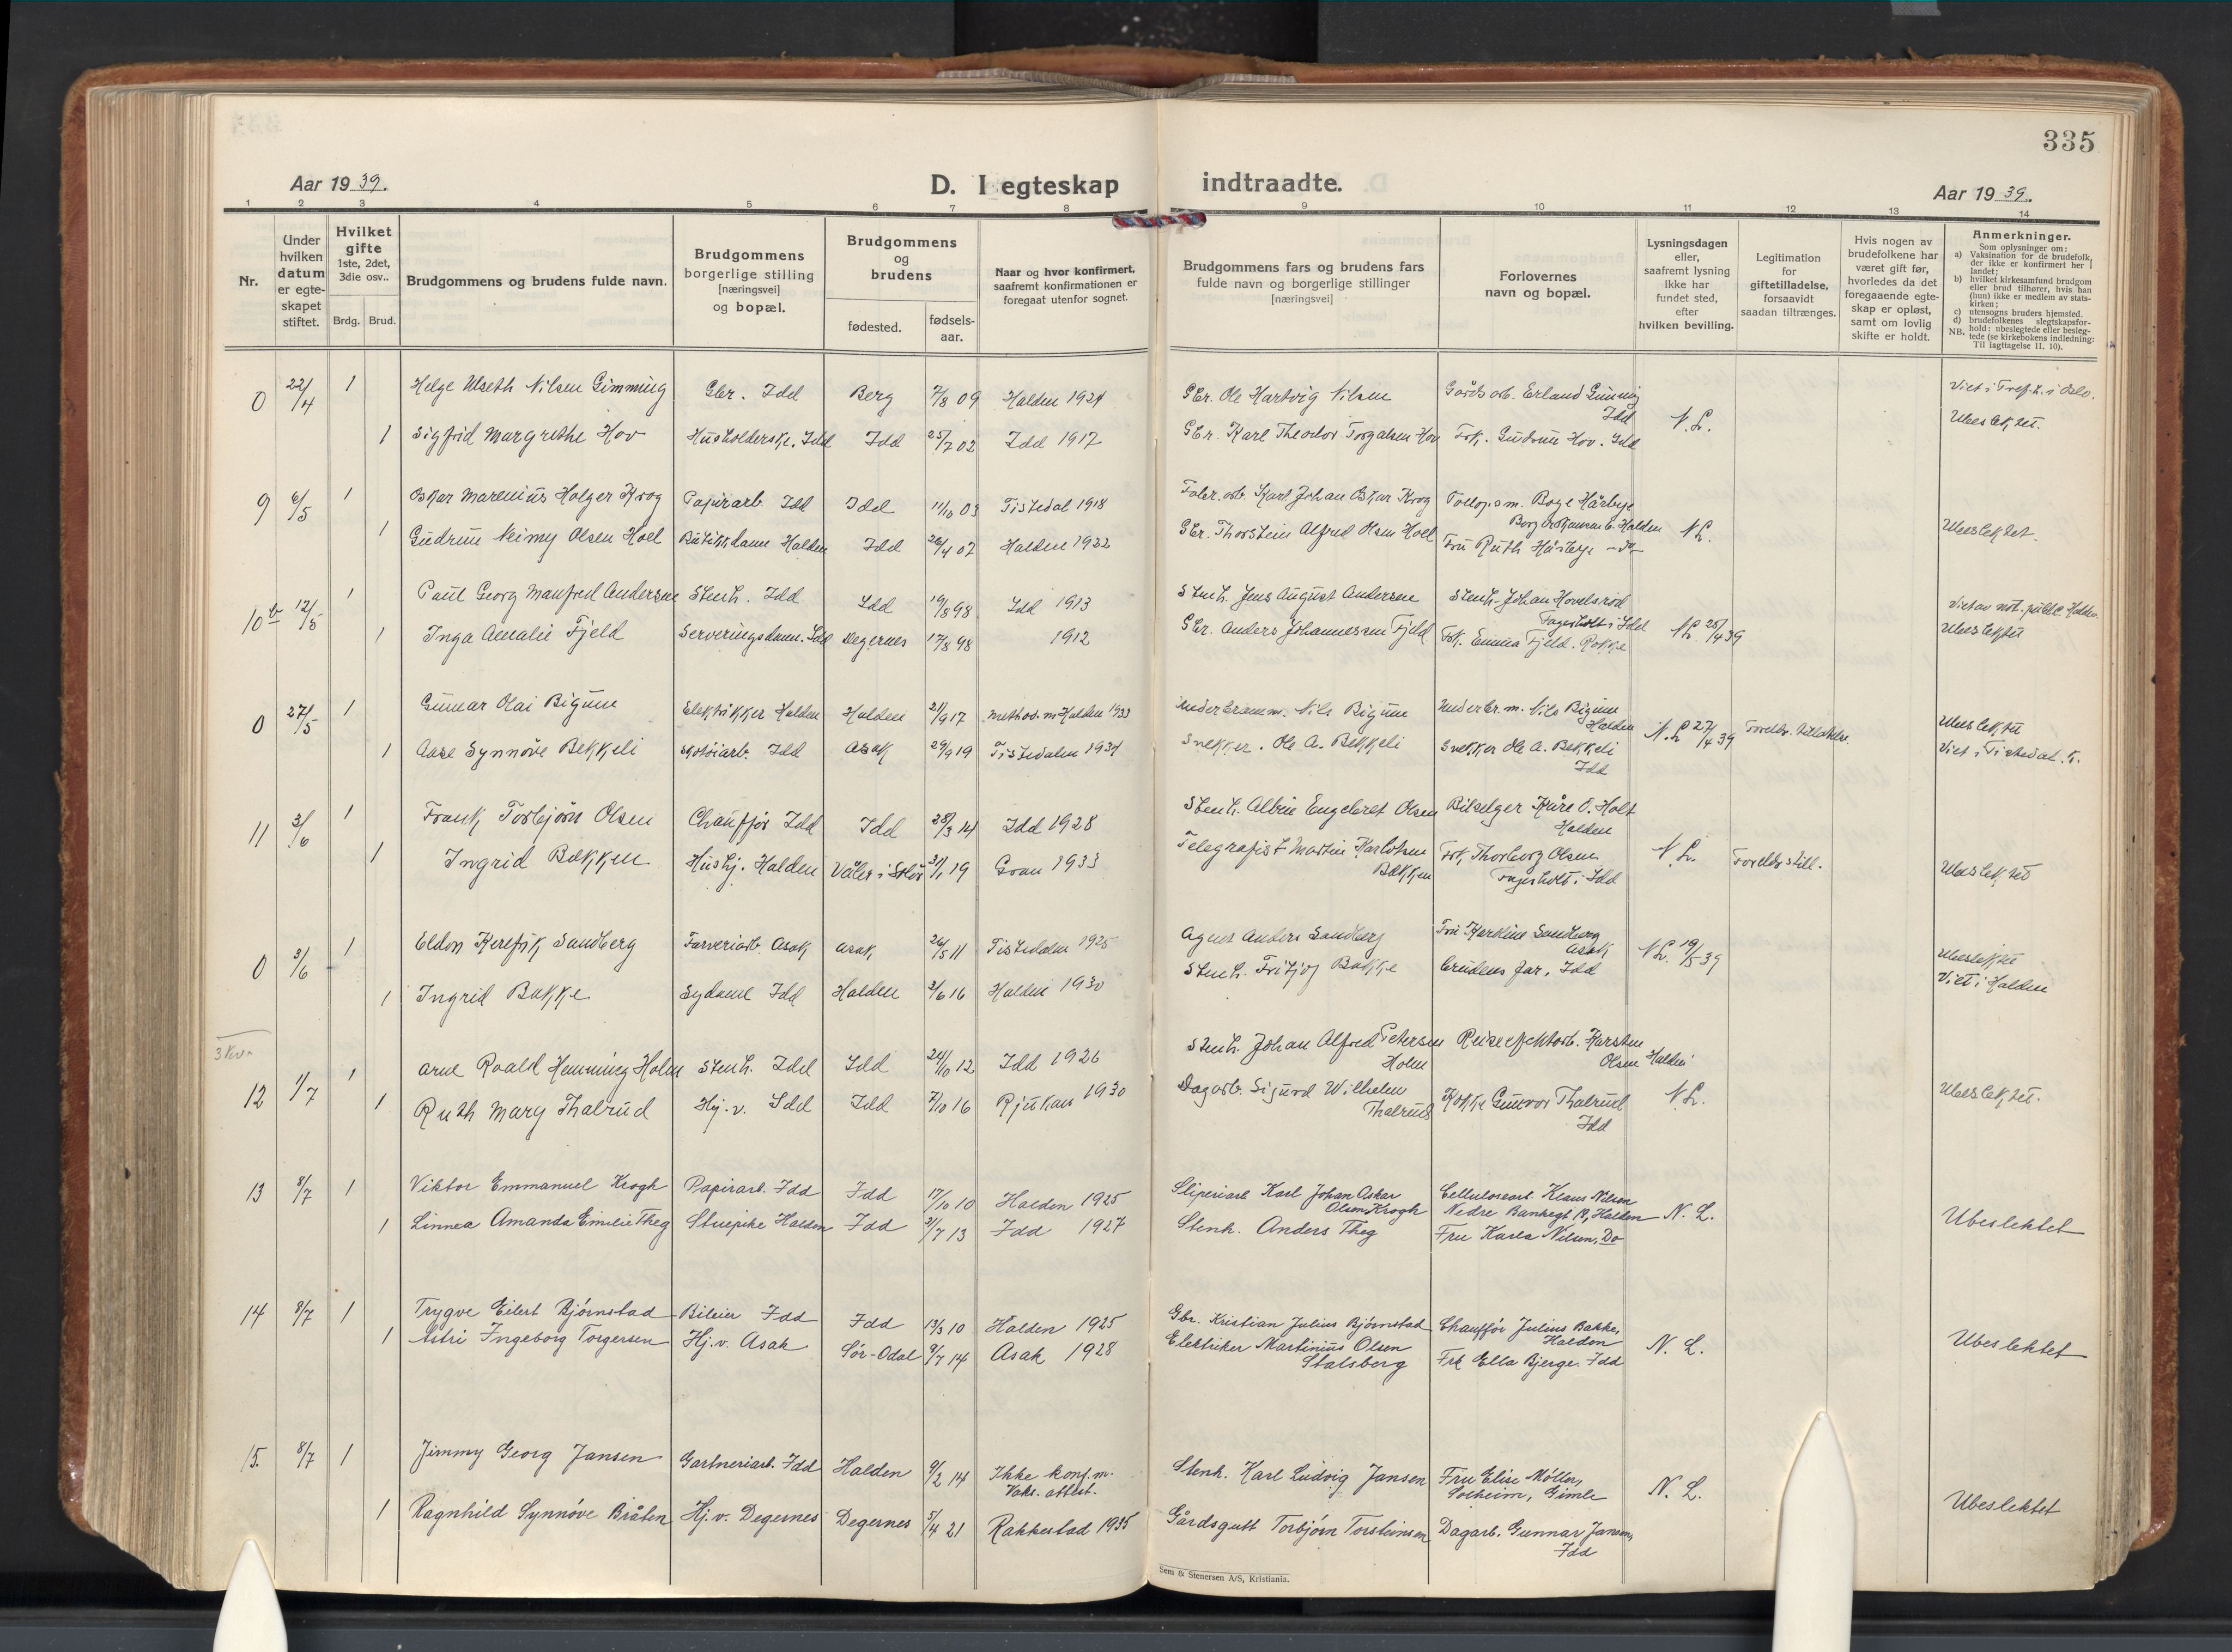 335
Aar 19 39.
D. I egteskap
indtraadte.
Aar 19 39.
1 2 3 4 5 6 7 8 9 10 11 12 13 14
Nr.
Under hvilken datum er egte-skapet stiftet.
Hvilket gifte 1ste, 2det, 3die osv..
Brdg. Brud.
Brudgommens og brudens fulde navn.
Brudgommens borgerlige stilling [næringsvei] og bopæl.
Brudgommens og brudens
fødested.
fødsels-aar.
Naar og hvor konfirmert, saafremt konfirmationen er foregaat utenfor sognet.
Brudgommens fars og brudens fars fulde navn og borgerlige stillinger [næringsvei]
Forlovernes navn og bopæl.
Lysningsdagen eller, saafremt lysning ikke har fundet sted, efter hvilken bevilling.
Legitimation for giftetilladelse, forsaavidt saadan tiltrænges.
Hvis nogen av brudefolkene har været gift før, hvorledes da det foregaaende egte-skap er opløst, samt om lovlig skifte er holdt.
Anmerkninger.
Som oplysninger om:
a) Vaksination for de brudefolk, der ikke er konfirmert her i landet;
b) hvilket kirkesamfund brudgom eller brud tilhører, hvis han (hun) ikke er medlem av stats-kirken;
c) utensogns bruders hjemsted.
d) brudefolkenes slegtskapsfor-hold: ubeslegtede eller besleg-tede (se kirkebokens indledning:
NB. Til iagttagelse II. 10).
0 22/4 1 Helge Ulseth Nilsen Gimming Gbr. Idd Berg 7/8 09 Halden 1924 Gbr. Ole Hartvig Nilsen Gårdsarb. Erland Gimming Idd N.L. Viet i Trefk. i Oslo.
1 Sigfrid Margrethe Hov Husholderske. Idd Idd 25/7 02 Idd 1917 Gbr. Karl Theodor Torgalsen Hov Frk. Gudrun Hov. Idd Ubeslektet.
9 6/5 1 Oskar Marenius Holger Krog Papirarb. Idd Idd 11/10 03 Tistedal 1918 Fabr. arb. Karl Johan Oskar Krog Tollops m. Boye Hårbye Borgermannsb. Halden N.L.
1 Gudrun Neimy Olsen Hoel Butikkdame Halden Idd 26/4 07 Halden 1922 Gbr. Thorstein Alfred Olsen Hoel Fru Ruth Hårbye -do- Ubeslektet.
10 b 12/5 1 Paul Georg Manfred Andersen Stenh. Idd Idd 19/8 98 Idd 1913 Stenh. Jens August Andersen Stenh. Johan Hovelsrød Fagerholt i Idd N.L. 25/4 39 Viet av not. public. Halden.
1 Inga Amalie Fjeld Serveringsdame. Idd Degernes 17/8 98 1912 Gbr. Anders Johannessen Fjeld Frk. Emma Fjeld. Rokke Ubeslektet
0 27/5 1 Gunnar Olai Bigum Elektrikker Halden Halden 21/9 17 Methodm. Halden 1933 Underbramm. Nils Bigum Underbr. m. Nils Bigum Halden N.L. 27/4 39 Foreldr. tillatelse. Ubeslektet
1 Aase Synnøve Bekkeli Skotøiarb. Idd Asak 29/9 19 Tistedalen 1934 Snekker. Ole A. Bekkeli Snekker Ole A. Bekkeli Idd Viet i Tistedal. K.
11 3/6 1 Frank Torbjørn Olsen Chauffør Idd Idd 28/3 14 Idd 1928 Stenh. Albin Engebret Olsen Bilselger Kåre O. Holt Halden
1 Ingrid Bækken Hushj. Halden Våler i Solør 31/1 19 Gran 1933 Telegrafist Martin Karlsen Bækken Frk. Thorborg Olsen Fagerholt i Idd N.L. Foreldr. till. Ubeslektet
0 3/6 1 Eldon Kerefsik Sandberg Farveriarb. Asak Asak 26/5 11 Tistedalen 1925 Agent Anders Sandberg Fru Karoline Sandberg Asak N.L. 19/5 39 Ubeslektet
1 Ingrid Bakke Sydame Idd Halden 3/6 16 Halden 1930 Stenh. Fritjof Bakke Brudens far, Idd Viet i Halden
3 kv.
12 1/7 1 Arne Roald Hemming Holm Stenh. Idd Idd 24/10 12 Idd 1926 Stenh. Johan Alfred Petersen Holm Reiseeffektarb. Karsten Olsen Halden
1 Ruth Mary Thalrud Hj. v. Idd Idd 7/10 16 Rjukan 1930 Dagarb. Sigurd Wilhelm Thalrud Kokke Gunvor Thalrud Idd N.L. Ubeslektet.
13 8/7 1 Viktor Emmanuel Krogh Papirarb. Idd Idd 17/10 10 Halden 1925 Sliperiarb Karl Johan Oskar Olsen Krogh Cellulosearb. Klaus Nilsen Nedre Bankegt 19, Halden N. L.
1 Linnea Amanda Emilie Theg Stuepike Halden Idd 21/7 13 Idd 1927 Stenh. Anders Theg Fru Karla Nilsen, Do Ubeslektet
14 8/7 1 Trygve Eilert Bjørnstad Bileier Idd Idd 13/3 10 Halden 1925 Gbr. Kristian Julius Bjørnstad Chauffør Julius Bakke, Halden
1 Astri Ingeborg Torgersen Hj. v. Asak Sør-Odal 9/7 14 Asak 1928 Elektriker Martinius Olsen Stalsberg Frk Ella Bjerge. Idd N. L. Ubeslektet
15. 8/7 1 Jimmy Georg Jansen Gartneriarb. Idd Halden 9/2 14 Ikke konf. m. Vaks. attest. Stenh. Karl Ludvig Jansen Fru Elise Møller, Solheim, Gimle N. L.
1 Ragnhild Synnøve Bråten Hj. v. Degernes Degernes 5/4 21 Rakkestad 1935 Gårdsgutt Torbjørn Torsteinsen Dagarb. Gunnar Jansen, Idd Ubeslektet
Sem & Stenersen A/S, Kristiania.